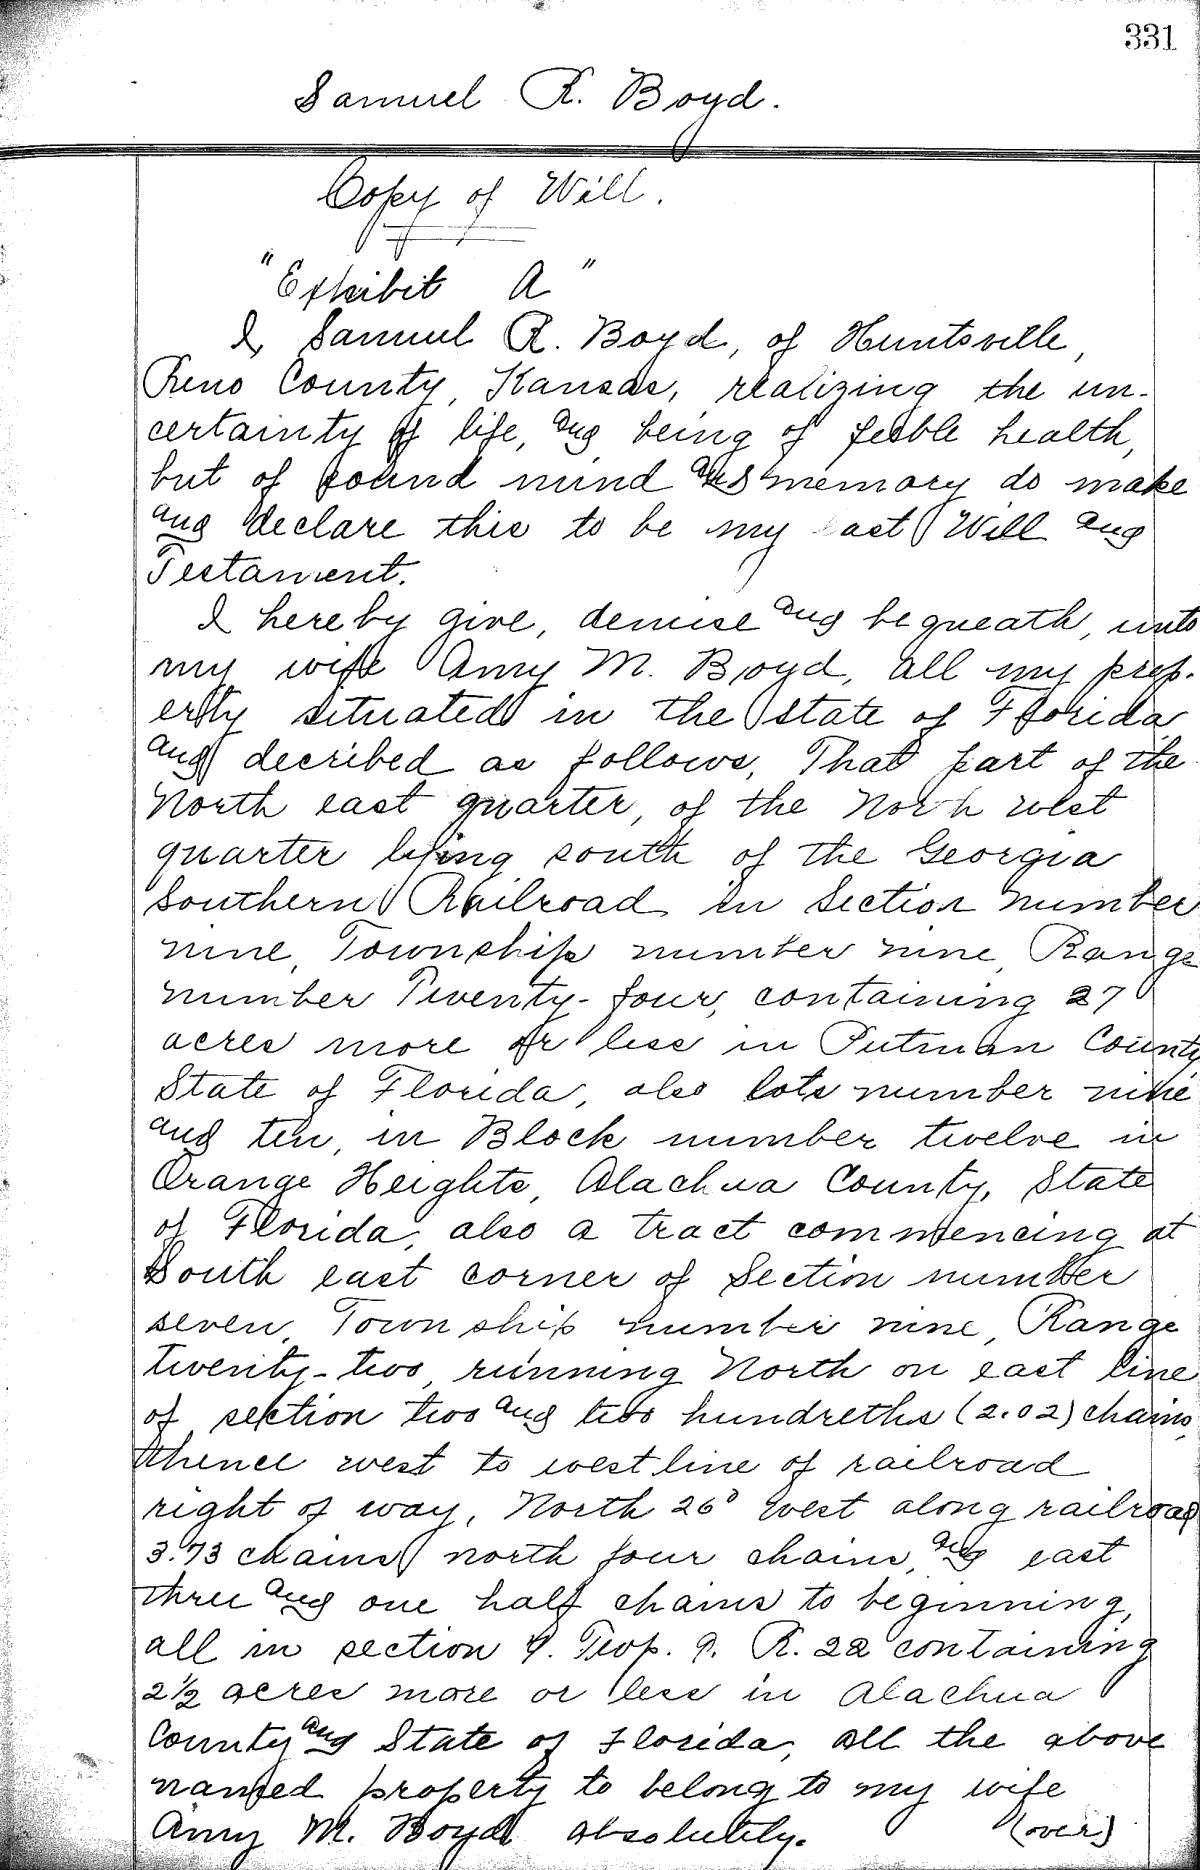 331
Samuel R. Boyd.
Copy of Will.
"Exhibit A"
I, Samuel R. Boyd, of Huntsville,
Reno County, Kansas, realizing the un-
certainty of life, and being of feeble health,
but of sound mind and memory do make
and declare this to be my last Will and
Testament.
I hereby give, demise and bequeath, unto
my wife Amy M. Boyd, all my prop-
erty situated in the State of Florida
and decribed as follows, That part of the
North east quarter, of the North west
quarter lying south of the Georgia
Southern Railroad in Section number
nine, Township number nine, Range
number Twenty-four, containing 27
acres more or less in Putman County
State of Florida, also lots number nine
and ten, in Block number twelve in
Orange Heights, Alachua County, State
of Florida, also a tract commencing at
South east corner of Section number
seven, Township number nine, Range
twenty-two, running North on east line
of section two and two hundreths (2.02) chains,
thence west to west line of railroad
right of way, North 26° West along railroad
3.73 chains north four chains, and east
three and one half chains to beginning,
all in section 9. Twp. 9. R. 22 containing
2½ acres more or less in Alachua
County and State of Florida, all the above
named property to belong to my wife
Amy M. Boyd absolutely. (over)